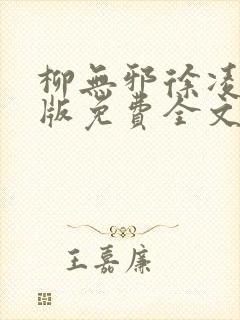 柳無邪徐凌
版免費全文
王嘉廉